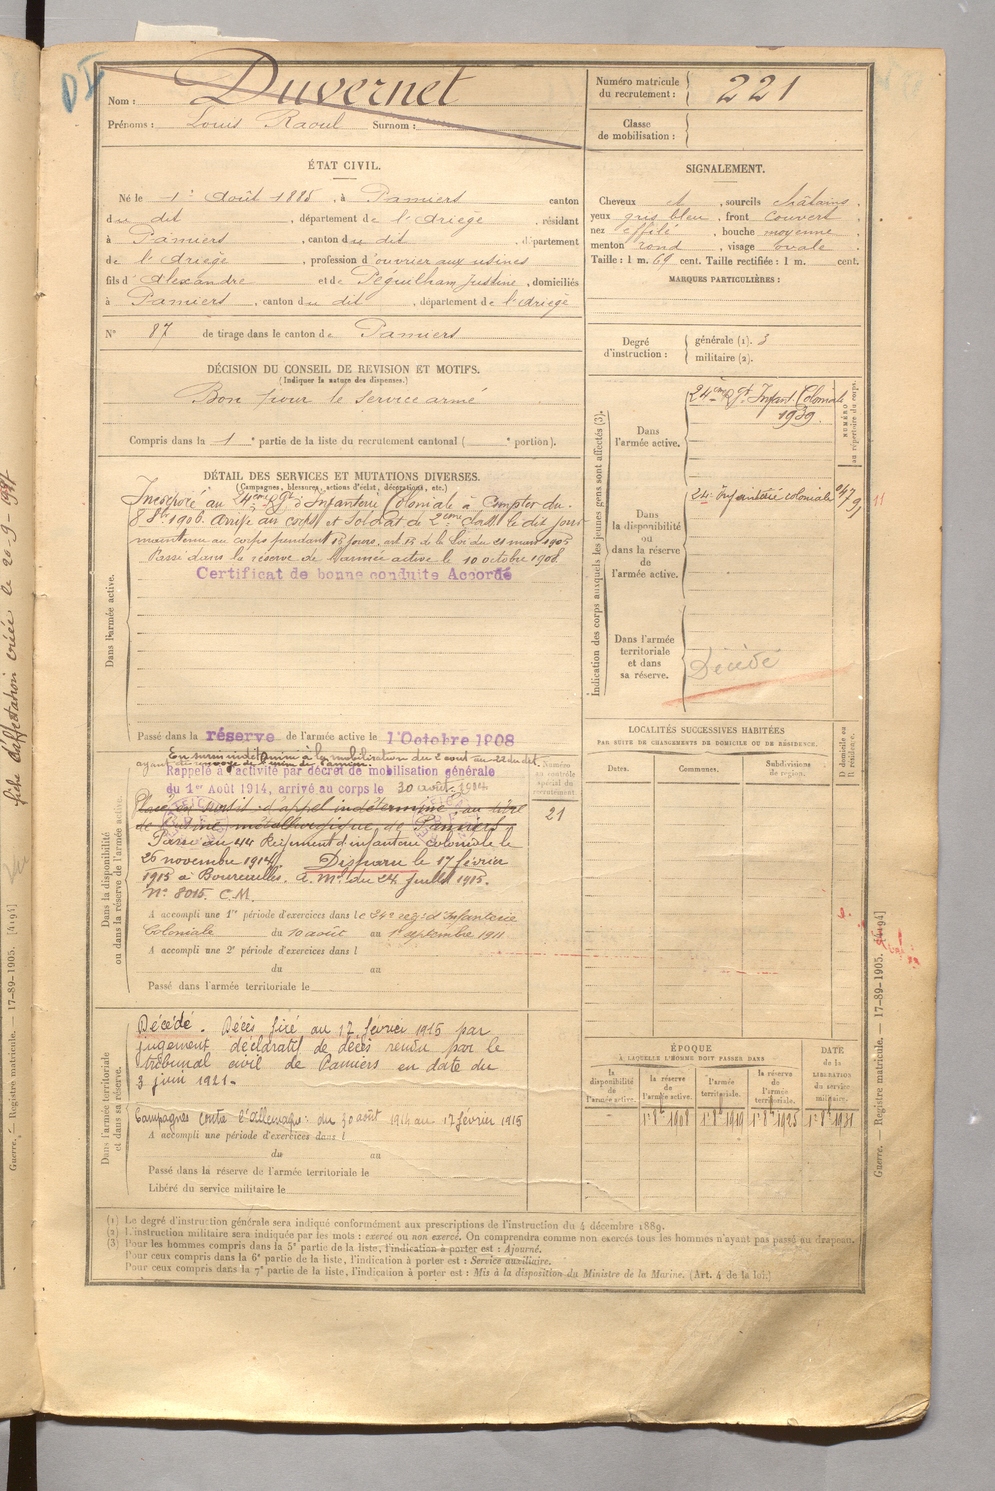 D
Nom : Duvernet
Prénoms : Louis Raoul Surnom :
Numéro matricule du recrutement : 221
Classe de mobilisation :
ÉTAT CIVIL.
Né le 1er Août 1885, à Pamiers canton
du dit, département de l'Ariège, résidant
à Pamiers, canton du dit, département
de l'Ariège, profession d'ouvrier aux usines
fils d'Alexandre et de Péguilham Justine, domiciliés
à Pamiers, canton du dit, département de l'Ariège
N° 87 de tirage dans le canton de Pamiers
SIGNALEMENT.
Cheveux et, sourcils châtains,
yeux gris bleu, front couvert
nez effilé, bouche moyenne
menton rond, visage ovale
Taille : 1 m. 69 cent. Taille rectifiée : 1 m. cent.
MARQUES PARTICULIÈRES :
Degré d'instruction : générale (1). 3
militaire (2).
DÉCISION DU CONSEIL DE REVISION ET MOTIFS.
(Indiquer la nature des dispenses.)
Bon pour le service armé
Compris dans la 1e partie de la liste du recrutement cantonal ( e portion).
DÉTAIL DES SERVICES ET MUTATIONS DIVERSES.
(Campagnes, blessures, actions d'éclat, décorations, etc.)
Dans l'armée active.
Incorporé au 24ème Rgt d'Infanterie Coloniale à Compter du
8 8bre 1906. arrivé au corps et Soldat de 2ème classe le dit jour
maintenu au corps pendant 15 jours, art 15 de la Loi du 21 mars 1905
Passé dans la réserve de l'armée active le 10 octobre 1908
Certificat de bonne conduite Accordé
Passé dans la réserve de l'armée active le 1 Octobre 1908
Dans la disponibilité ou dans la réserve de l'armée active.
mobilisation du 2 aout au 22 du dit.
Rappelé à l'activité par décret de mobilisation générale
du 1er Août 1914, arrivé au corps le 30 août 1914
Placé en sursis d'appel indéterminé au titre
de l'usine métallurgique de Pamiers
Passé au 44 Régiment d'infanterie coloniale le
26 novembre 1914. Disparu le 17 février
1915 à Boureuilles. A.M. du 24 juillet 1915.
N° 8015. C.M.
A accompli une 1re période d'exercices dans le 24e rég. d'Infanterie
Coloniale du 10 août au 1er septembre 1911
A accompli une 2e période d'exercices dans l
du au
Passé dans l'armée territoriale le
Numéro au contrôle spécial du recrutement
21
Dans l'armée territoriale et dans sa réserve.
Décédé. Décès fixé au 17 février 1915 par
jugement déclaratif de décès rendu par le
tribunal civil de Pamiers en date du
3 juin 1921.
Campagnes contre l'Allemagne : du 30 août 1914 au 17 février 1915
A accompli une période d'exercices dans l
du au
Passé dans la réserve de l'armée territoriale le
Libéré du service militaire le
Indication des corps auxquels les jeunes gens sont affectés (3).
NUMÉRO au répertoire du corps.
Dans l'armée active.
24ème Rgt Infant. Coloniale
1939.
Dans la disponibilité ou dans la réserve de l'armée active.
24e infanterie coloniale
11
Dans l'armée territoriale et dans sa réserve.
Décédé
LOCALITÉS SUCCESSIVES HABITÉES
PAR SUITE DE CHANGEMENTS DE DOMICILE OU DE RÉSIDENCE.
Dates. Communes. Subdivisions de région. D domicile ou R résidence.
ÉPOQUE
À LAQUELLE L'HOMME DOIT PASSER DANS
la disponibilité de l'armée active. la réserve de l'armée active. l'armée territoriale. la réserve de l'armée territoriale.
DATE de la LIBÉRATION du service militaire.
1er 8bre 1908 1er 8bre 1919 1er 8bre 1925 1er 8bre 1931
(1) Le degré d'instruction générale sera indiqué conformément aux prescriptions de l'instruction du 4 décembre 1889.
(2) L'instruction militaire sera indiquée par les mots : exercé ou non exercé. On comprendra comme non exercés tous les hommes n'ayant pas passé au drapeau.
(3) Pour les hommes compris dans la 5e partie de la liste, l'indication à porter est : Ajourné.
Pour ceux compris dans la 6e partie de la liste, l'indication à porter est : Service auxiliaire.
Pour ceux compris dans la 7e partie de la liste, l'indication à porter est : Mis à la disposition du Ministre de la Marine. (Art. 4 de la loi.)
Guerre. — Registre matricule. — 17-89-1905. [4194]
Guerre. — Registre matricule. — 17-89-1905. [4194]
fiche d'affectation créée le 20-9-